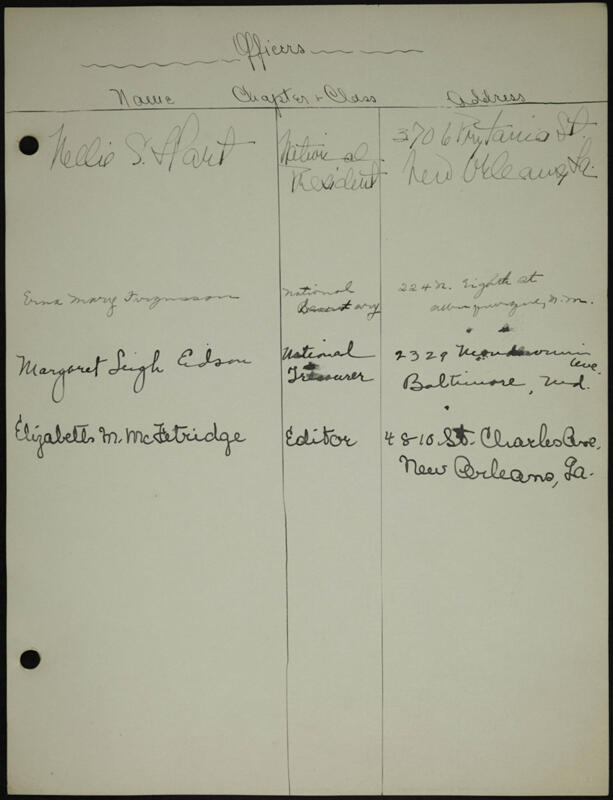 Officers
Name Chapter + Class Address
Nellie S. Hart National President 3706 Prytania St. New Orleans, La.
Erna Mary Fergusson National Secretary 224 N. Eighth St Albuquerque, N.M.
Margaret Leigh Eidson National Treasurer 2329 Ave. Baltimore, Md.
Elizabeth M. McFetridge Editor 4810 St. Charles Ave. New Orleans, La.